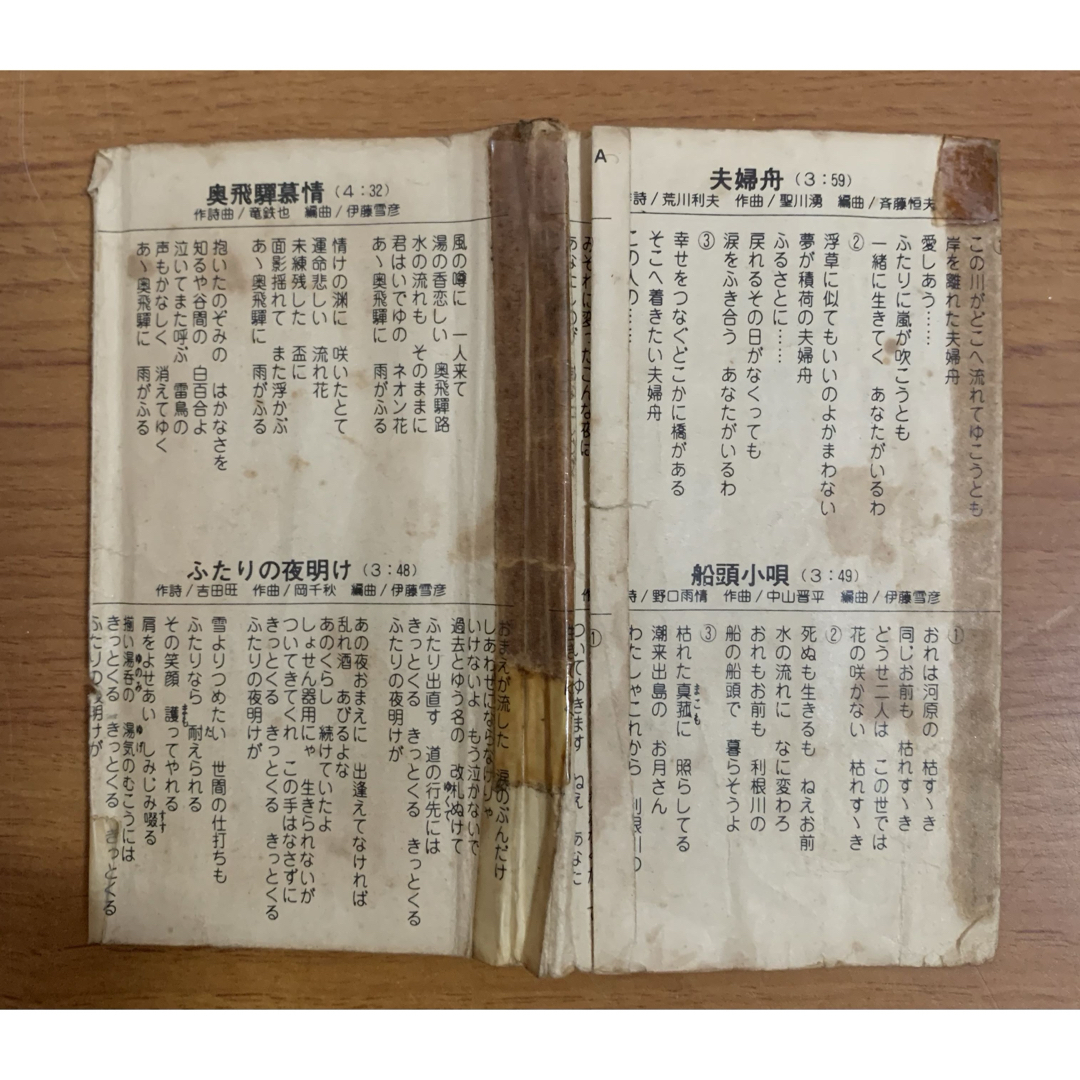 A
夫婦舟 (3:59)
詩/荒川利夫 作曲/聖川湧 編曲/斉藤恒夫
この川がどこへ流れてゆこうとも
岸を離れた夫婦舟
愛しあう……
ふたりに嵐が吹こうとも
一緒に生きてく あなたがいるわ
②
浮草に似てもいいのよかまわない
夢が積荷の夫婦舟
ふるさとに……
戻れるその日がなくっても
涙をふき合う あなたがいるわ
③
幸せをつなぐどこかに橋がある
そこへ着きたい夫婦舟
この人の……
船頭小唄 (3:49)
詩/野口雨情 作曲/中山晋平 編曲/伊藤雪彦
①
おれは河原の 枯れすゝき
同じお前も 枯れすゝき
どうせ二人は この世では
花の咲かない 枯れすゝき
②
死ぬも生きるも ねえお前
水の流れに なに変わろ
おれもお前も 利根川の
船の船頭で 暮らそうよ
③
枯れた真菰に 照らしてる
まこも
潮来出島の お月さん
わたしゃこれから 利根川の
奥飛騨慕情 (4:32)
作詩曲/竜鉄也 編曲/伊藤雪彦
風の噂に 一人来て
湯の香恋しい 奥飛騨路
水の流れも そのままに
君はいでゆの ネオン花
あ〜奥飛騨に 雨がふる
情けの渕に 咲いたとて
運命悲しい 流れ花
未練残した 盃に
面影揺れて また浮かぶ
あ〜奥飛騨に 雨がふる
抱いたのぞみの はかなさを
知るや谷間の 白百合よ
泣いてまた呼ぶ 雷鳥の
声もかなしく 消えてゆく
あ〜奥飛騨に 雨がふる
ふたりの夜明け (3:48)
作詩/吉田旺 作曲/岡千秋 編曲/伊藤雪彦
おまえが流した 涙のぶんだけ
しあわせにならなけりゃ
いけないよ もう泣かないで
過去とゆう名の 改札ぬけて
ふたり出直す 道の行先には
ゆくて
きっとくる きっとくる きっとくる
ふたりの夜明けが
あの夜おまえに 出逢えてなければ
乱れ酒 あびるよな
あのくらし 続けていたよ
しょせん器用にゃ 生きられないが
ついてきてくれ この手はなさずに
きっとくる きっとくる きっとくる
ふたりの夜明けが
雪よりつめたい 世間の仕打ちも
ふたりなら 耐えられる
た
その笑顔 護ってやれる
まも
肩をよせあい しみじみ啜る
すす
揃い湯呑の 湯気のむこうには
ゆのみ ゆげ
きっとくる きっとくる きっとくる
ふたりの夜明けが